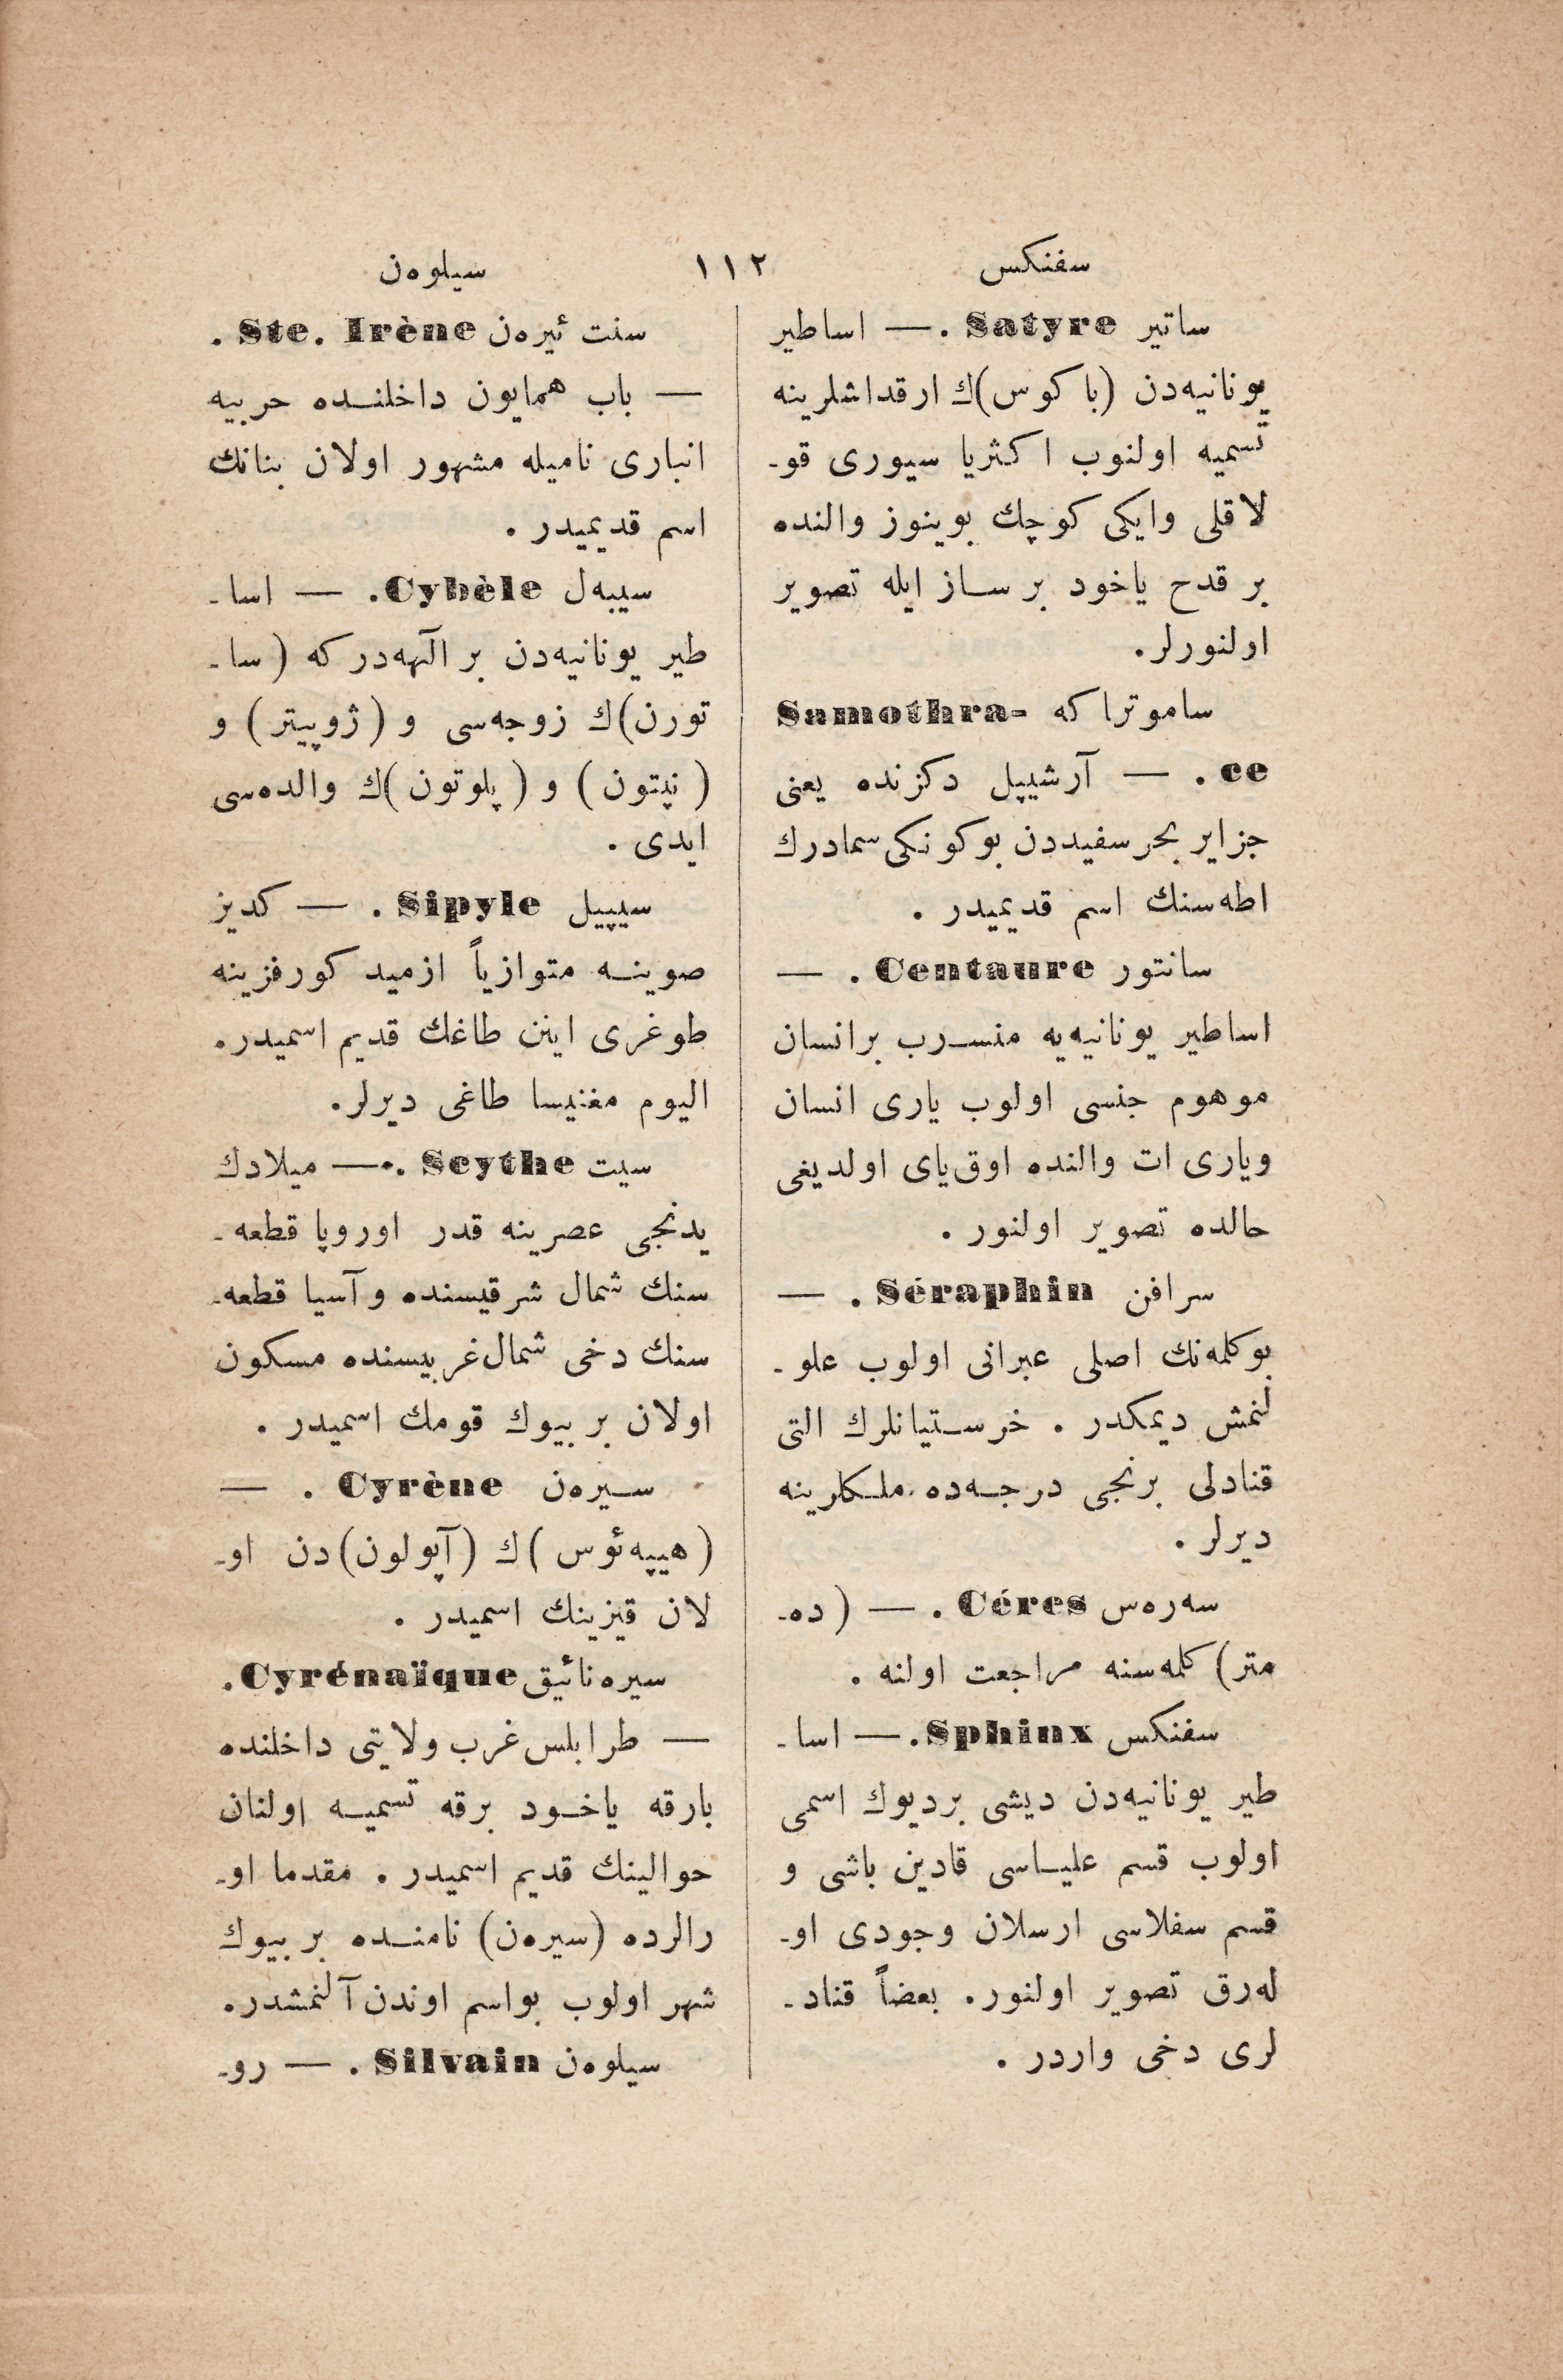 سفنكس ١١٢ سیلوه‌ن
ساتیر Satyre .— اساطیر
یونانیه‌دن (باكوس)ك ارقداشلرینه
تسمیه اولنوب اكثریا سیوری قو-
لاقلی وایكی كوچك بوینوز والنده
بر قدح یاخود بر ساز ایله تصویر
اولنورلر.
ساموتراكه Samothra-
ce . — آرشیپل دكزنده یعنی
جزایر بحر سفیددن بوكونكی سمادرك
اطه‌سنك اسم قدیمیدر .
سانتور Centaure . —
اساطیر یونانیه‌یه منسوب برانسان
موهوم جنسی اولوب یاری انسان
ویاری ات والنده اوق‌یای اولدیغی
حالده تصویر اولنور .
سرافن Séraphin . —
بوكلمه‌نك اصلی عبرانی اولوب علو-
لنمش دیمكدر . خرستیانلرك التی
قنادلی برنجی درجه‌ده ملكلرینه
دیرلر .
سه‌ره‌س Céres . — (ده-
متر) كلمه‌سنه مراجعت اولنه .
سفنكس Sphinx. — اسا-
طیر یونانیه‌دن دیشی بردیوك اسمی
اولوب قسم علیاسی قادین باشی و
قسم سفلاسی ارسلان وجودی او-
له‌رق تصویر اولنور. بعضاً قناد-
لری دخی واردر .
سنت ئیره‌ن Ste. Irène .
— باب همایون داخلنده حربیه
انباری نامیله مشهور اولان بنانك
اسم قدیمیدر .
سیبه‌ل Cybèle. — اسا-
طیر یونانیه‌دن بر آلهه‌دركه (سا-
تورن)ك زوجه‌سی و (ژوپیتر) و
(نپتون) و (پلوتون)ك والده‌سی
ایدی .
سیپیل Sipyle . — كدیز
صوینه متوازیاً ازمید كورفزینه
طوغری اینن طاغك قدیم اسمیدر.
الیوم مغنیسا طاغی دیرلر.
سیت Scythe .— میلادك
یدنجی عصرینه قدر اوروپا قطعه-
سنك شمال شرقیسنده وآسیا قطعه-
سنك دخی شمال‌غربیسنده مسكون
اولان بر بیوك قومك اسمیدر .
سیره‌ن Cyrène . —
(هیپه‌ئوس)ك (آپولون)دن او-
لان قیزینك اسمیدر .
سیره‌نائیق Cyrénaïque.
— طرابلس‌غرب ولایتی داخلنده
بارقه یاخود برقه تسمیه اولنان
حوالینك قدیم اسمیدر . مقدما او-
رالرده (سیره‌ن) نامنده بر بیوك
شهر اولوب بواسم اوندن آلنمشدر.
سیلوه‌ن Silvain . — رو-